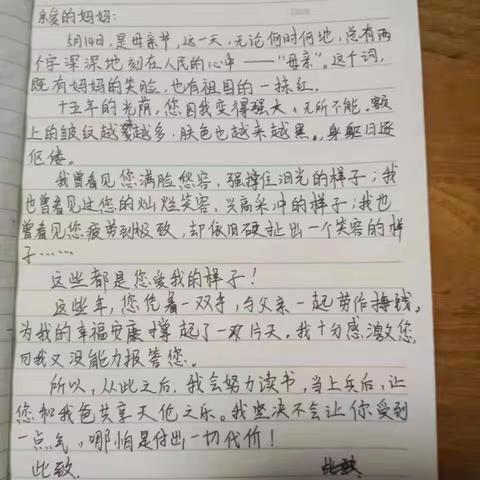 亲爱的妈妈：
5月14日，是母亲节，这一天，无论何时何地，总有两
个字深深地刻在人民的心中——“母亲”。这个词，
既有妈妈的笑脸，也有祖国的一抹红。
十五年的光荫，您因我变得强大、无所不能。额
上的皱纹越来越多，肤色也越来越黑。身躯日逐
伛偻。
我曾看见您满脸愁容，强撑住泪光的样子；我
也曾看见过您的灿烂笑容，兴高采冲的样子；我也
曾看见您疲劳到极致，却依旧硬扯出一个笑容的样
子……
这些都是您爱我的样子！
这些年，您凭着一双手，与父亲一起劳作挣钱，
为我的幸福安康撑起了一片天。我十分感激您，
可我又没能力报答您。
所以，从此之后，我会努力读书，当上兵后，让
您和我爸共享天伦之乐。我坚决不会让你受到
一点气，哪怕是付出一切代价！
此致